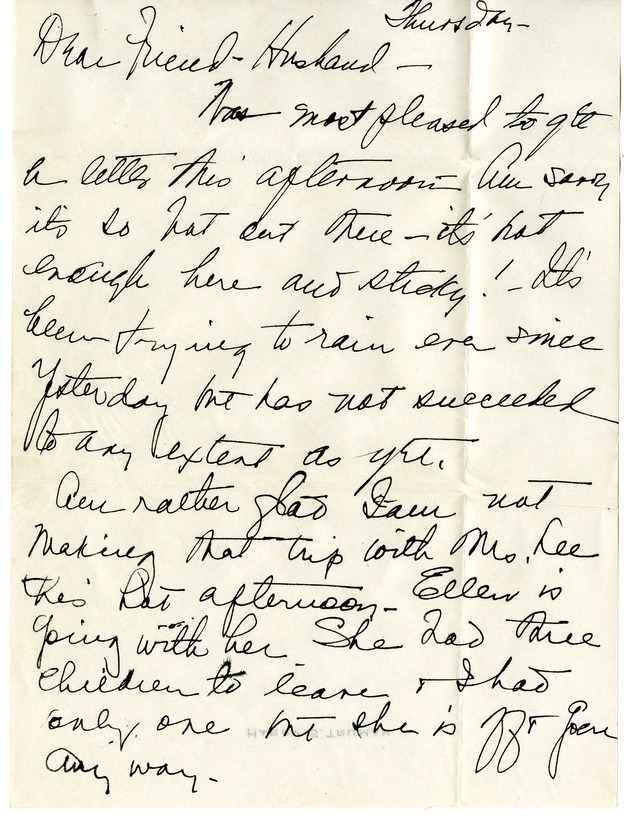 Thursday-
Dear Friend-Husband-
Was most pleased to get
a letter this afternoon Am sorry
it's so hot out there - it's hot
enough here and sticky! - It's
been trying to rain ever since
yesterday but has not succeeded
to any extent as yet.
Am rather glad I am not
making that trip with Mrs. Lee
this hot afternoon- Ellen is
going with her She had three
children to leave & I had
only one but she is off & goin
any way-
HARRY S. TRUMAN